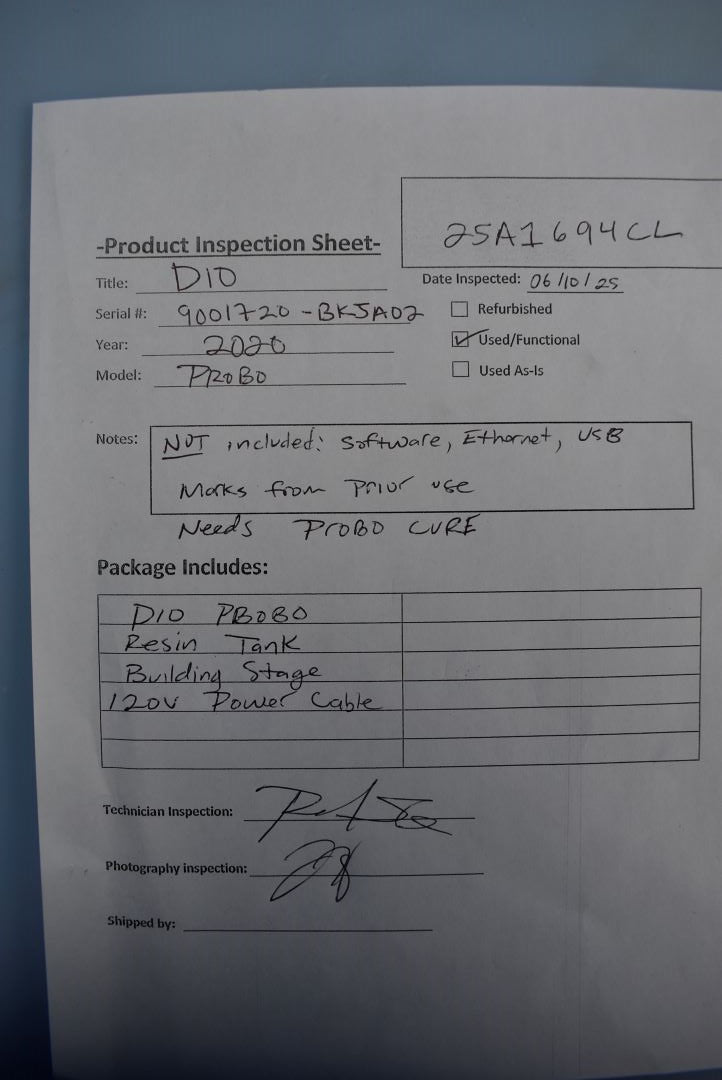 25A1694CL
-Product Inspection Sheet-
Title: DIO
Date Inspected: 06/10/25
Serial #: 9001720-BKJA02
Refurbished
Year: 2020
Used/Functional
Model: PROBO
Used As-Is
Notes: NOT included: Software, Ethernet, USB
Marks from Prior use
Needs ProBO CURE
Package Includes:
DIO PBOBO
Resin Tank
Building Stage
120V Power Cable
Technician Inspection:
Photography inspection:
Shipped by: